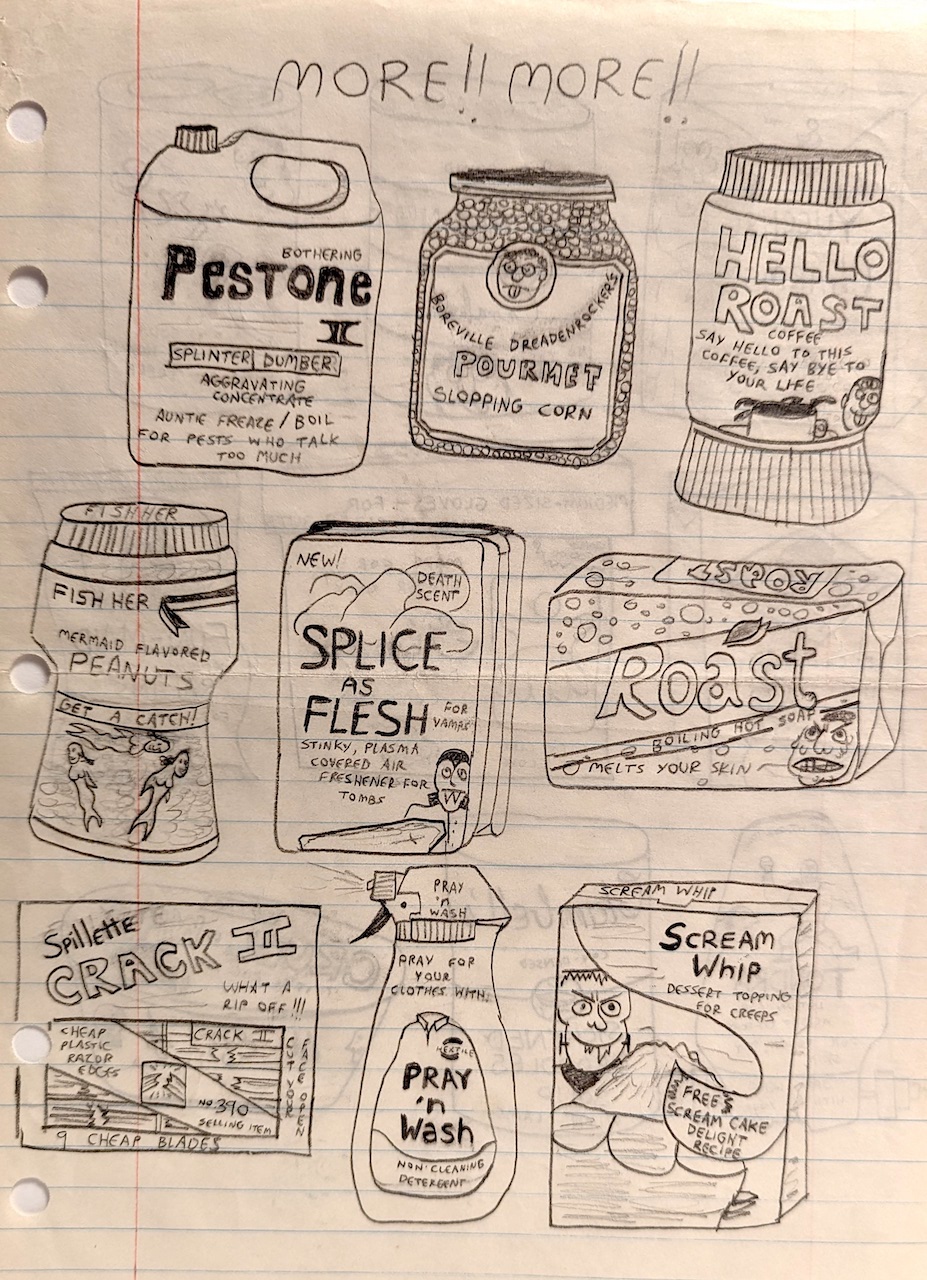 MORE!! MORE!!
BOTHERING
PESTONE
II
SPLINTER DUMBER
AGGRAVATING
CONCENTRATE
AUNTIE FREAZE / BOIL
FOR PESTS WHO TALK
TOO MUCH
BOREVILLE DREADENROCKER'S
POURMET
SLOPPING CORN
HELLO
ROAST
COFFEE
SAY HELLO TO THIS
COFFEE, SAY BYE TO
YOUR LIFE
FISH HER
FISH HER
MERMAID FLAVORED
PEANUTS
GET A CATCH!
NEW!
DEATH
SCENT
SPLICE
AS
FLESH
FOR
VAMPS
STINKY, PLASMA
COVERED AIR
FRESHENER FOR
TOMBS
W
ROAST
Roast
BOILING HOT SOAP
MELTS YOUR SKIN
Spillette
CRACK II
WHAT A
RIP OFF!!!
CHEAP
PLASTIC
RAZOR
EDGES
CRACK II
NO. 390
SELLING ITEM
CUT YOUR
FACE OPEN
9 CHEAP BLADES
PRAY
'n
WASH
PRAY FOR
YOUR
CLOTHES WITH,
PRAY
'n
Wash
NON-CLEANING
DETERGENT
SCREAM WHIP
SCREAM
Whip
DESSERT TOPPING
FOR CREEPS
FREE
SCREAM CAKE
DELIGHT
RECIPE